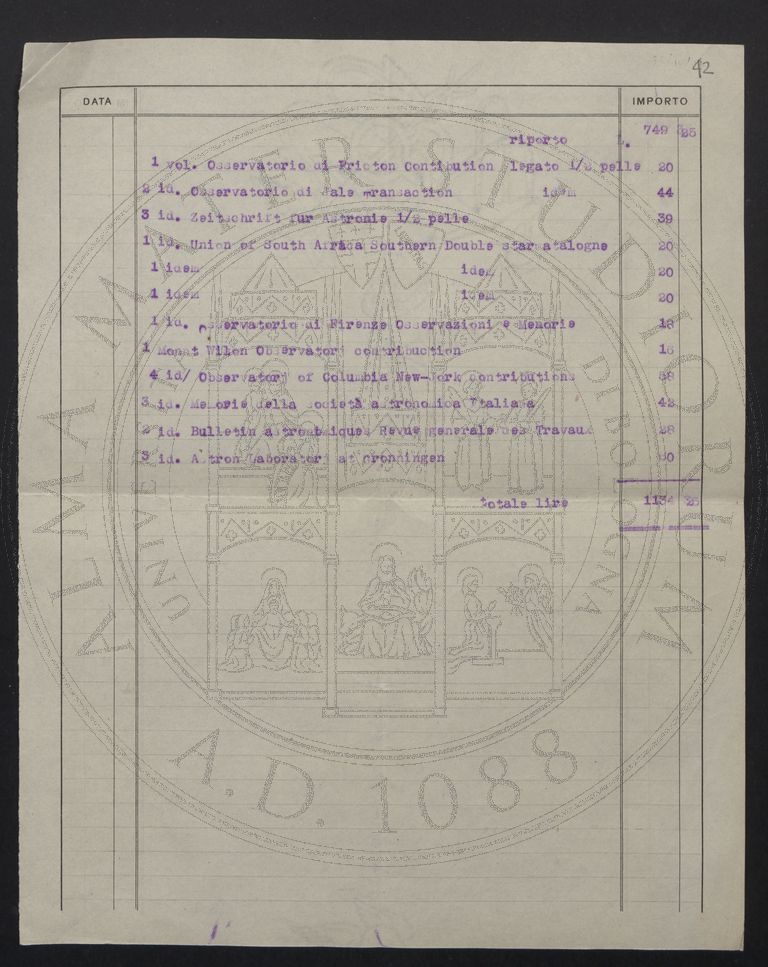 42
DATA IMPORTO
riporto L. 749 25
1 vol. Osservatorio di Pricton Contibution legato 1/2 pelle 20
2 id. Osservatorio di Yale Transaction idem 44
3 id. Zeitschrift fur Astronie 1/2 pelle 39
1 id. Union of South Africa Southern Double star atalogne 20
1 idem idem 20
1 idem idem 20
1 id. Osservatorio di Firenze Osservazioni e Memorie
1 Monnt Wilon Observatory contribuction 16
4 id/ Observatory of Columbia New-York Contributions
3 id. Memorie della società astronomica Italiana 42
2 id. Bulletin astronomiques Revue generale des Travaux 28
3 id. Astron Laboratory at Gronningen
totale lire 1134 25
ALMA MATER STUDIORUM
UNIVERSITÀ DI BOLOGNA
A.D. 1088